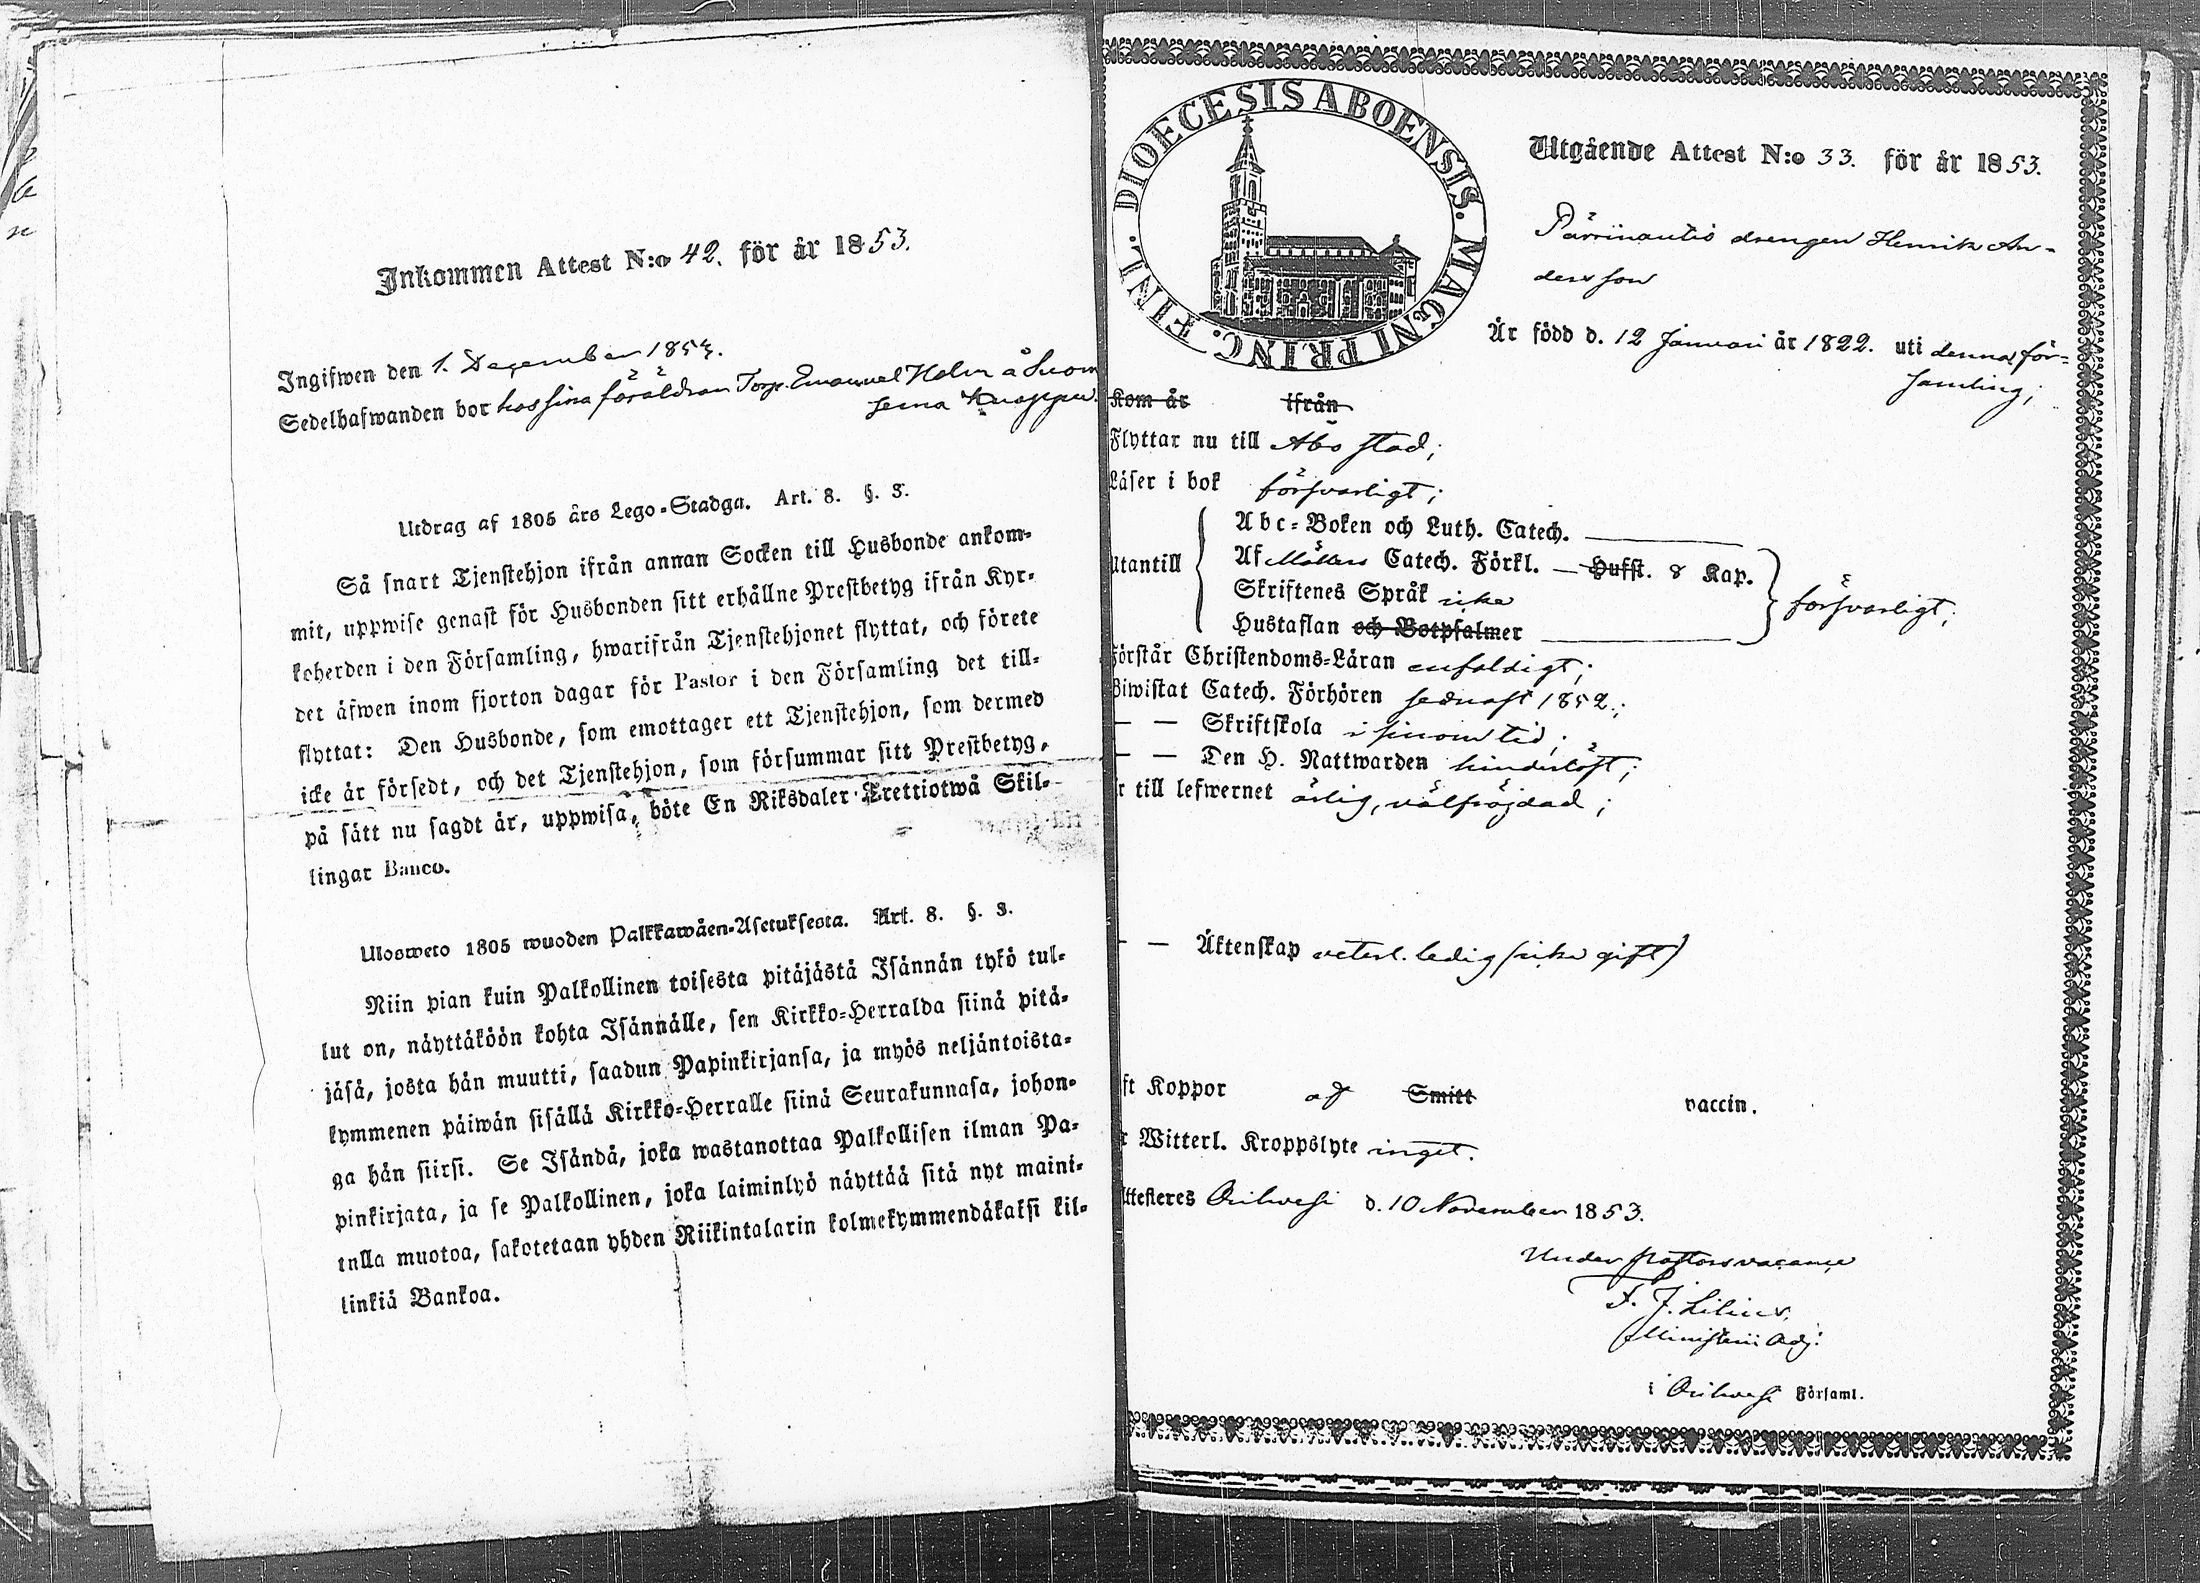 Inkommen Attest N:o 42. för år 1853.
Ingifwen den 1. December 1853.
Sedelhafwanden bor hos sina föräldrar Torp. Emanuel Holm å Suom
sema
Utdrag af 1805 års Lego-Stadga. Art. 8. §. 3.
Så snart Tjenstehjon ifrån annan Socken till Husbonde ankom-
mit, uppwise genast för Husbonden sitt erhållne Prestbetyg ifrån Kyr-
koherden i den Församling, hwarifrån Tjenstehjonet flyttat, och förete
det äfwen inom fjorton dagar för Pastor i den Församling det till-
flyttat: Den Husbonde, som emottager ett Tjenstehjon, som dermed
icke är försedt, och det Tjenstehjon, som försummar sitt Prestbetyg,
på sätt nu sagdt är, uppwisa, böte En Riksdaler Trettiotwå Skil-
lingar Banco.
Ulosweto 1805 wuoden Palkkawäen-Asetuksesta. Art. 8. §. 3.
Niin pian kuin Palkollinen toisesta pitäjästä Isännän tykö tul-
lut on, näyttäköön kohta Isännälle, sen Kirkko-Herralda siinä pitä-
jäsä, josta hän muutti, saadun Papinkirjansa, ja myös neljäntoista-
kymmenen päiwän sisällä Kirkko-Herralle siinä Seurakunnasa, johon-
ga hän siirsi. Se Isändä, joka wastanottaa Palkollisen ilman Pa-
pinkirjata, ja se Palkollinen, joka laiminlyö näyttää sitä nyt maini-
tulla muotoa, sakotetaan yhden Riikintalarin kolmekymmendäkaksi kil-
linkiä Bankoa.
DIOECESIS ABOENSIS. MAGNI PRINC. FINL.
Utgående Attest N:o 33. för år 1853.
drengen Henrik An-
dersson
Är född d. 12 Januari år 1822. uti denna för-
samling;
Kom år ifrån
Flyttar nu till Åbo stad;
Läser i bok försvarligt;
Abc-Boken och Luth. Catech.
Utantill Af Möllers Catech. Förkl. — Hufst. 8 Kap.
Skriftenes Språk icke försvarligt;
Hustaflan och Botpsalmer
Förstår Christendoms-Läran enfaldigt;
Biwistat Catech. Förhören sednast 1852;
— — Skriftskola i sinom tid;
— — Den H. Nattwarden hinderlöst;
r till lefwernet ärlig, välfrejdad;
— — Äktenskap veterl. ledig (icke gift)
ft Koppor af Smitt vaccin.
r Witterl. Kroppslyte inget.
Attesteres Orihvesi d. 10 November 1853.
Under pastorsvacance
F. J. Lilius,
Ministerii Adj:
i Orihvesi Församl.